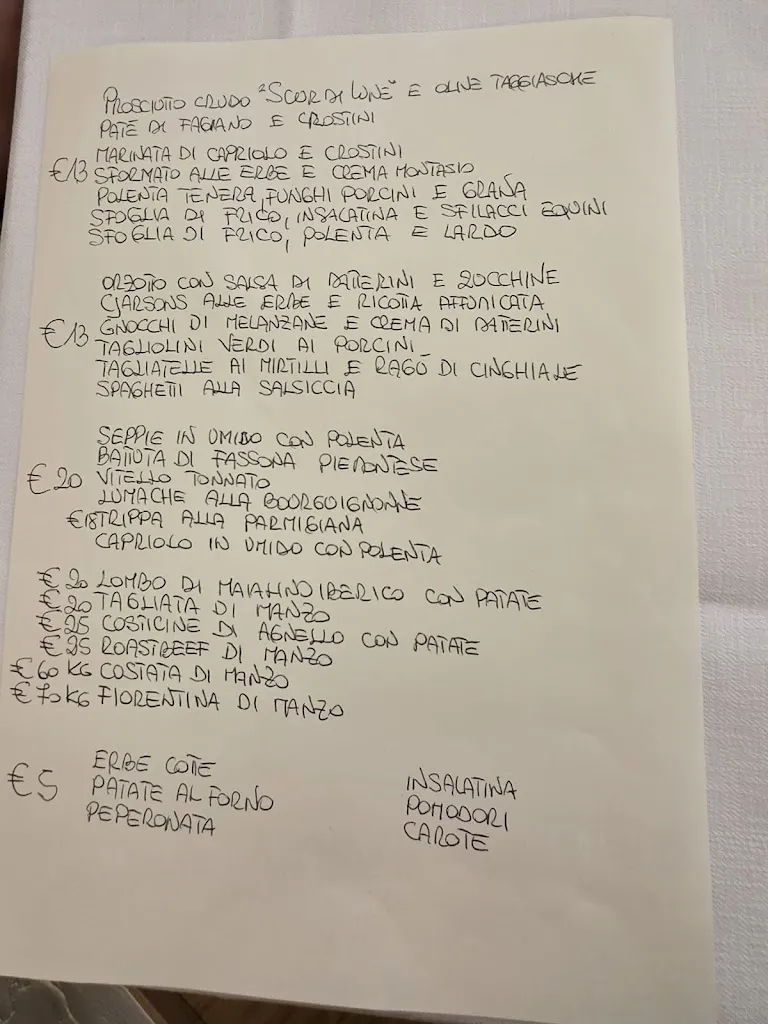 PROSCIUTTO CRUDO "SCUR DI LUNE" E OLIVE TAGGIASCHE
PATÈ DI FAGIANO E CROSTINI
MARINATA DI CAPRIOLO E CROSTINI
€13 SFORMATO ALLE ERBE E CREMA MONTASIO
POLENTA TENERA, FUNGHI PORCINI E GRANA
SFOGLIA DI FRICO, INSALATINA E SFILACCI EQUINI
SFOGLIA DI FRICO, POLENTA E LARDO
ORZOTTO CON SALSA DI DATTERINI E ZUCCHINE
CJARSONS ALLE ERBE E RICOTTA AFFUMICATA
€13 GNOCCHI DI MELANZANE E CREMA DI DATTERINI
TAGLIOLINI VERDI AI PORCINI
TAGLIATELLE AI MIRTILLI E RAGÙ DI CINGHIALE
SPAGHETTI ALLA SALSICCIA
SEPPIE IN UMIDO CON POLENTA
BATTUTA DI FASSONA PIEMONTESE
€20 VITELLO TONNATO
LUMACHE ALLA BOURGUIGNONNE
€18 TRIPPA ALLA PARMIGIANA
CAPRIOLO IN UMIDO CON POLENTA
€20 LOMBO DI MAIALINO IBERICO CON PATATE
€20 TAGLIATA DI MANZO
€25 COSTICINE DI AGNELLO CON PATATE
€25 ROASTBEEF DI MANZO
€60 KG COSTATA DI MANZO
€70 KG FIORENTINA DI MANZO
ERBE COTTE
€5 PATATE AL FORNO
PEPERONATA
INSALATINA
POMODORI
CAROTE